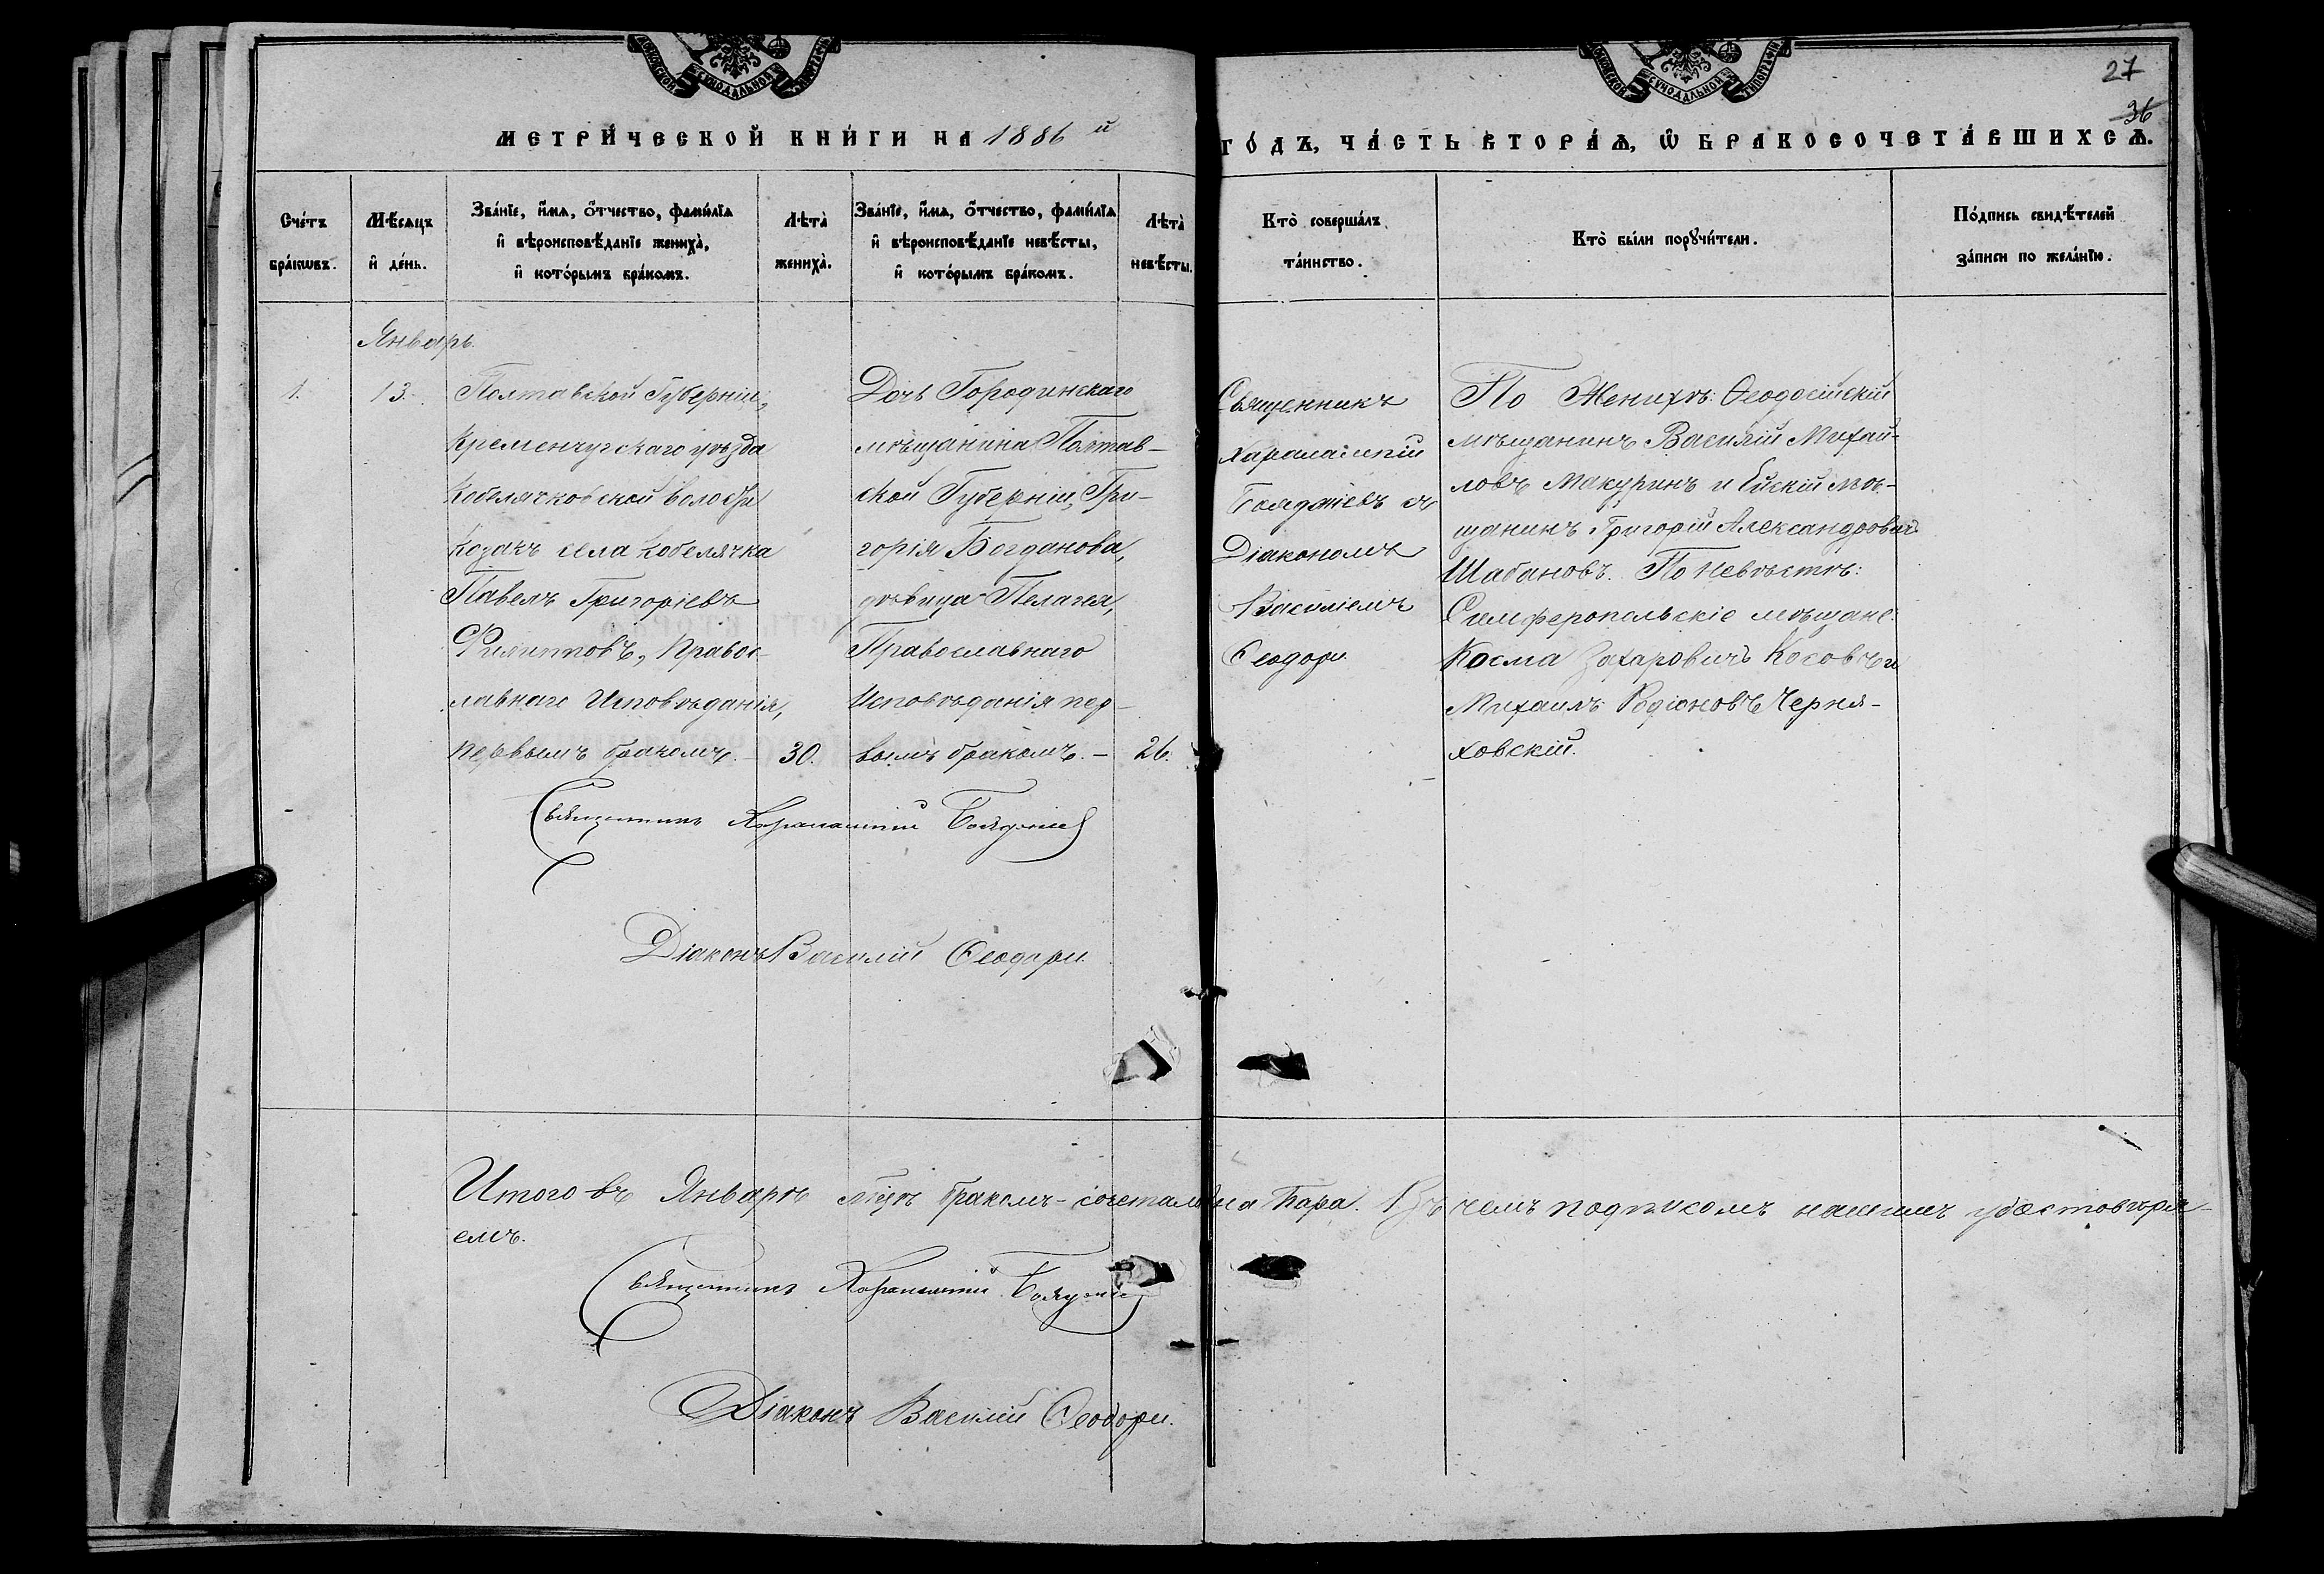 МОСКОВСКОЙ СѴНОДАЛЬНОЙ ТИПОГРАФІИ
МОСКОВСКОЙ СѴНОДАЛЬНОЙ ТИПОГРАФІИ
27
36
МЕТРИ́ЧЕСКОЙ КНИ́ГИ НА 1886 й
ГО́ДЪ, ЧА́СТЬ ВТОРА́Ѧ, Ѽ БРАКОСОЧЕТА́ВШИХСѦ.
Сче́тъ
бра́кѡвъ.
Мѣ́сѧцъ
и҆ де́нь.
Зва́нїе, и҆́мѧ, о҆́тчество, фами́лїѧ
и҆ вѣроисповѣ́данїе жениха̀,
и҆ кото́рымъ бра́комъ.
Лѣта̀
жениха̀.
Зва́нїе, и҆́мѧ, о҆́тчество, фами́лїѧ
и҆ вѣроисповѣ́данїе невѣ́сты,
и҆ кото́рымъ бра́комъ.
Лѣта̀
невѣ́сты.
Кто̀ соверша́лъ
та́инство.
Кто̀ бы́ли порꙋчи́тели.
По́дпись свидѣ́телей
за́писи по жела́нїю.
Январь.
1.
13.
Полтавской Губерніи,
Кременчугскаго уѣзда
Кобелячковской волости
Козакъ села Кобелячка
Павелъ Григоріевъ
Филипповъ, Правос-
лавнаго Исповѣданія,
первымъ бракомъ. –
30.
Дочь Городинскаго
мѣщанина Полтав-
ской Губерніи, Гри-
горія Богданова,
дѣвица Пелагія,
Православнаго
Исповѣданія пер-
вымъ бракомъ. –
26.
Священникъ
Харалампій
Бояджіевъ съ
Діакономъ
Василіемъ
Ѳеодори
По Женихѣ: Ѳеодосійскій
мѣщанинъ Василій Михай-
ловъ Макуринъ и Ейскій мѣ-
щанинъ Григорій Александровичъ
Шабановъ. По Невѣстѣ:
Симферопольскіе мѣщане:
Косма Захаровичъ Косовъ и
Михаилъ Родіоновъ Черня-
ховскій.
Священникъ Харалампій Бояджіевъ
Діаконъ Василій Ѳеодори
Итого въ Январѣ м-цѣ бракомъ сочетана пара. Въ чемъ подписомъ нашимъ удостовѣря-
емъ.
Священникъ Харалампій Бояджіевъ
Діаконъ Василій Ѳеодори.